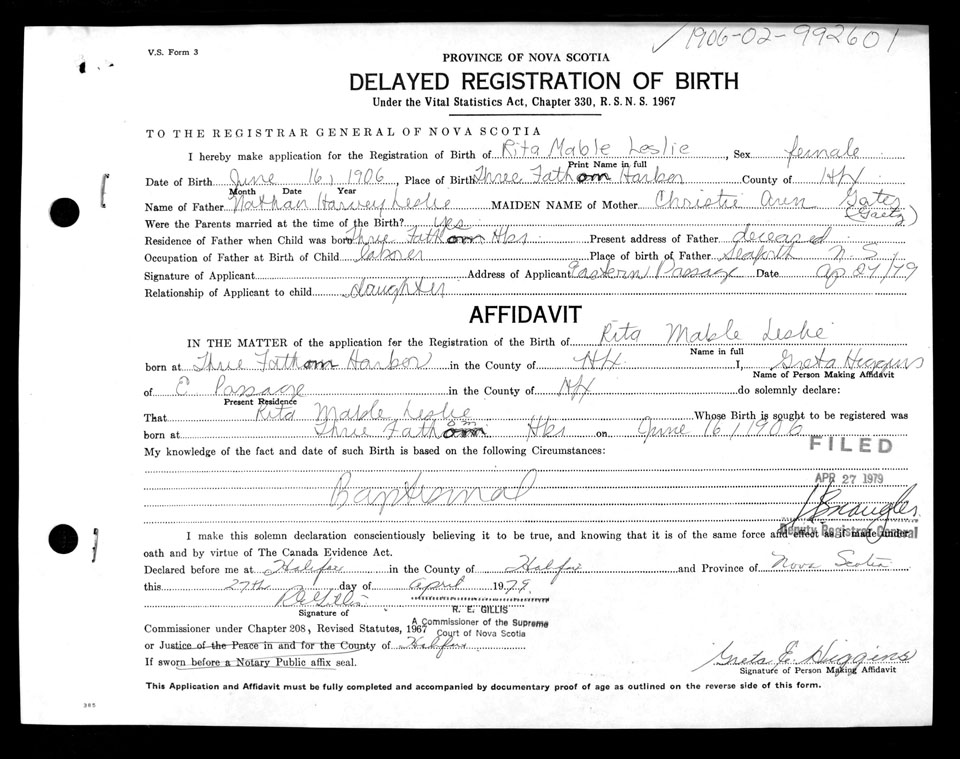 1906-02-992601
V.S. Form 3
PROVINCE OF NOVA SCOTIA
DELAYED REGISTRATION OF BIRTH
Under the Vital Statistics Act, Chapter 330, R.S.N.S. 1967
TO THE REGISTRAR GENERAL OF NOVA SCOTIA
I hereby make application for the Registration of Birth of Rita Mable Leslie, Sex female
Print Name in full
Date of Birth June 16, 1906, Place of Birth Three Fathom Harbor County of Hfx
Month Date Year
Name of Father Nathan Harvey Leslie MAIDEN NAME of Mother Christie Ann Gates
(Gaetz)
Were the Parents married at the time of the Birth? Yes
Residence of Father when Child was born Three Fathom Hbr Present address of Father deceased
Occupation of Father at Birth of Child laborer Place of birth of Father Seaforth N.S.
Signature of Applicant Address of Applicant Eastern Passage Date Ap 27/79
Relationship of Applicant to child daughter
AFFIDAVIT
IN THE MATTER of the application for the Registration of Birth of Rita Mable Leslie
Name in full
born at Three Fathom Harbor in the County of Hfx I, Greta Higgins
Name of Person Making Affidavit
of E Passage in the County of Hfx do solemnly declare:
Present Residence
That Rita Mable Leslie Whose Birth is sought to be registered was
born at Three Fathom Hbr on June 16, 1906
FILED
My knowledge of the fact and date of such Birth is based on the following Circumstances:
APR 27 1979
Baptismal
Deputy Registrar General
I make this solemn declaration conscientiously believing it to be true, and knowing that it is of the same force and effect as if made under
oath and by virtue of The Canada Evidence Act.
Declared before me at Halifax in the County of Halifax and Province of Nova Scotia
this 27th day of April 1979
R E Gillis
Signature of
R. E. GILLIS
A Commissioner of the Supreme
Court of Nova Scotia
Commissioner under Chapter 208, Revised Statutes, 1967
or Justice of the Peace in and for the County of Halifax
If sworn before a Notary Public affix seal.
Greta E. Higgins
Signature of Person Making Affidavit
This Application and Affidavit must be fully completed and accompanied by documentary proof of age as outlined on the reverse side of this form.
385